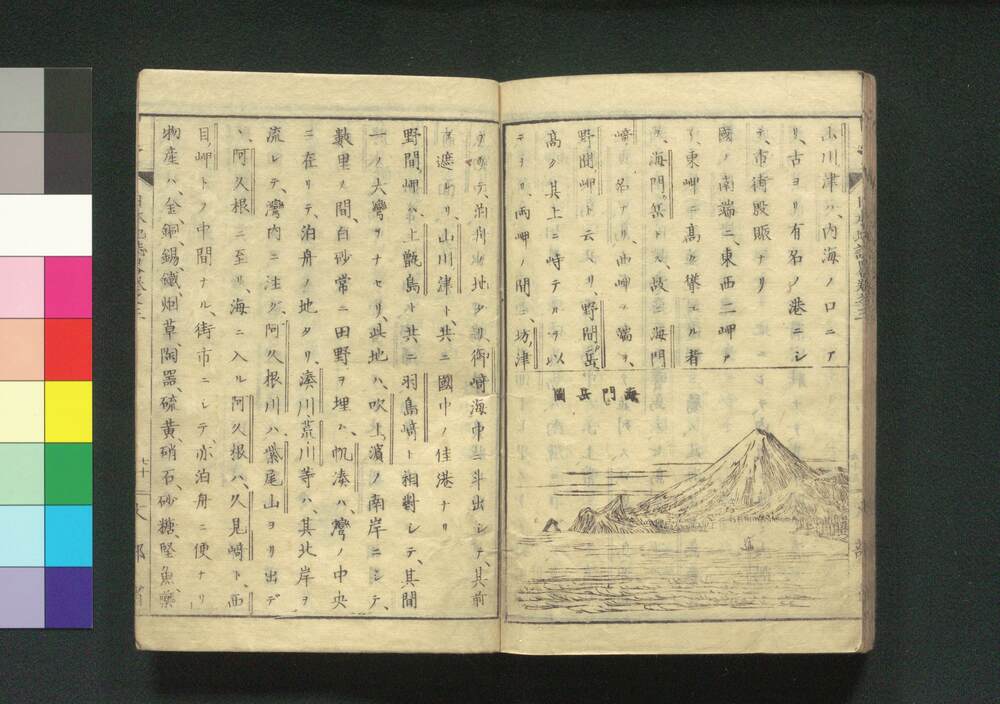 山川津ハ、內海ノ口ニア
リ、古ヨリ有名ノ港ニシ
テ、市街殷賑ナリ
國ノ南端ニ、東西二岬ア
リ、東岬ニ高ク聳エル者
ヲ、海門岳ト云、故ニ海門
崎ノ名アリ、西岬ノ端ヲ、
野間岬ト云ヘリ、野間岳、
高ク其上ニ峙テルヲ以
テナリ、兩岬ノ間、坊ノ津
海門岳圖
アリテ、泊舟ノ地タリ、御崎海中ニ斗出シテ、其前
ヲ遮レリ、山川津ト、共ニ國中ノ佳港ナリ
野間岬ハ、上甑島ト共ニ羽島崎ト相對シテ、其間
一ノ大灣ヲナセリ、此地ハ、吹上濱ノ南岸ニシテ、
數里ノ間、白砂常ニ田野ヲ埋ム、帆湊ハ、灣ノ中央
ニ在リテ、泊舟ノ地タリ、湊川荒川等ハ、其北岸ヲ
流レテ、灣內ニ注グ、阿久根川ハ、紫尾山ヨリ出デ
、阿久根ニ至リ、海ニ入ル阿久根ハ、久見崎ト、西
目岬トノ中間ナル、街市ニシテ、亦泊舟ニ便ナリ
物產ハ、金、銅、錫、鐵、烟草、陶器、硫黃、硝石、砂糖、堅魚、藥
日本地誌略卷之三
七十一
文部省